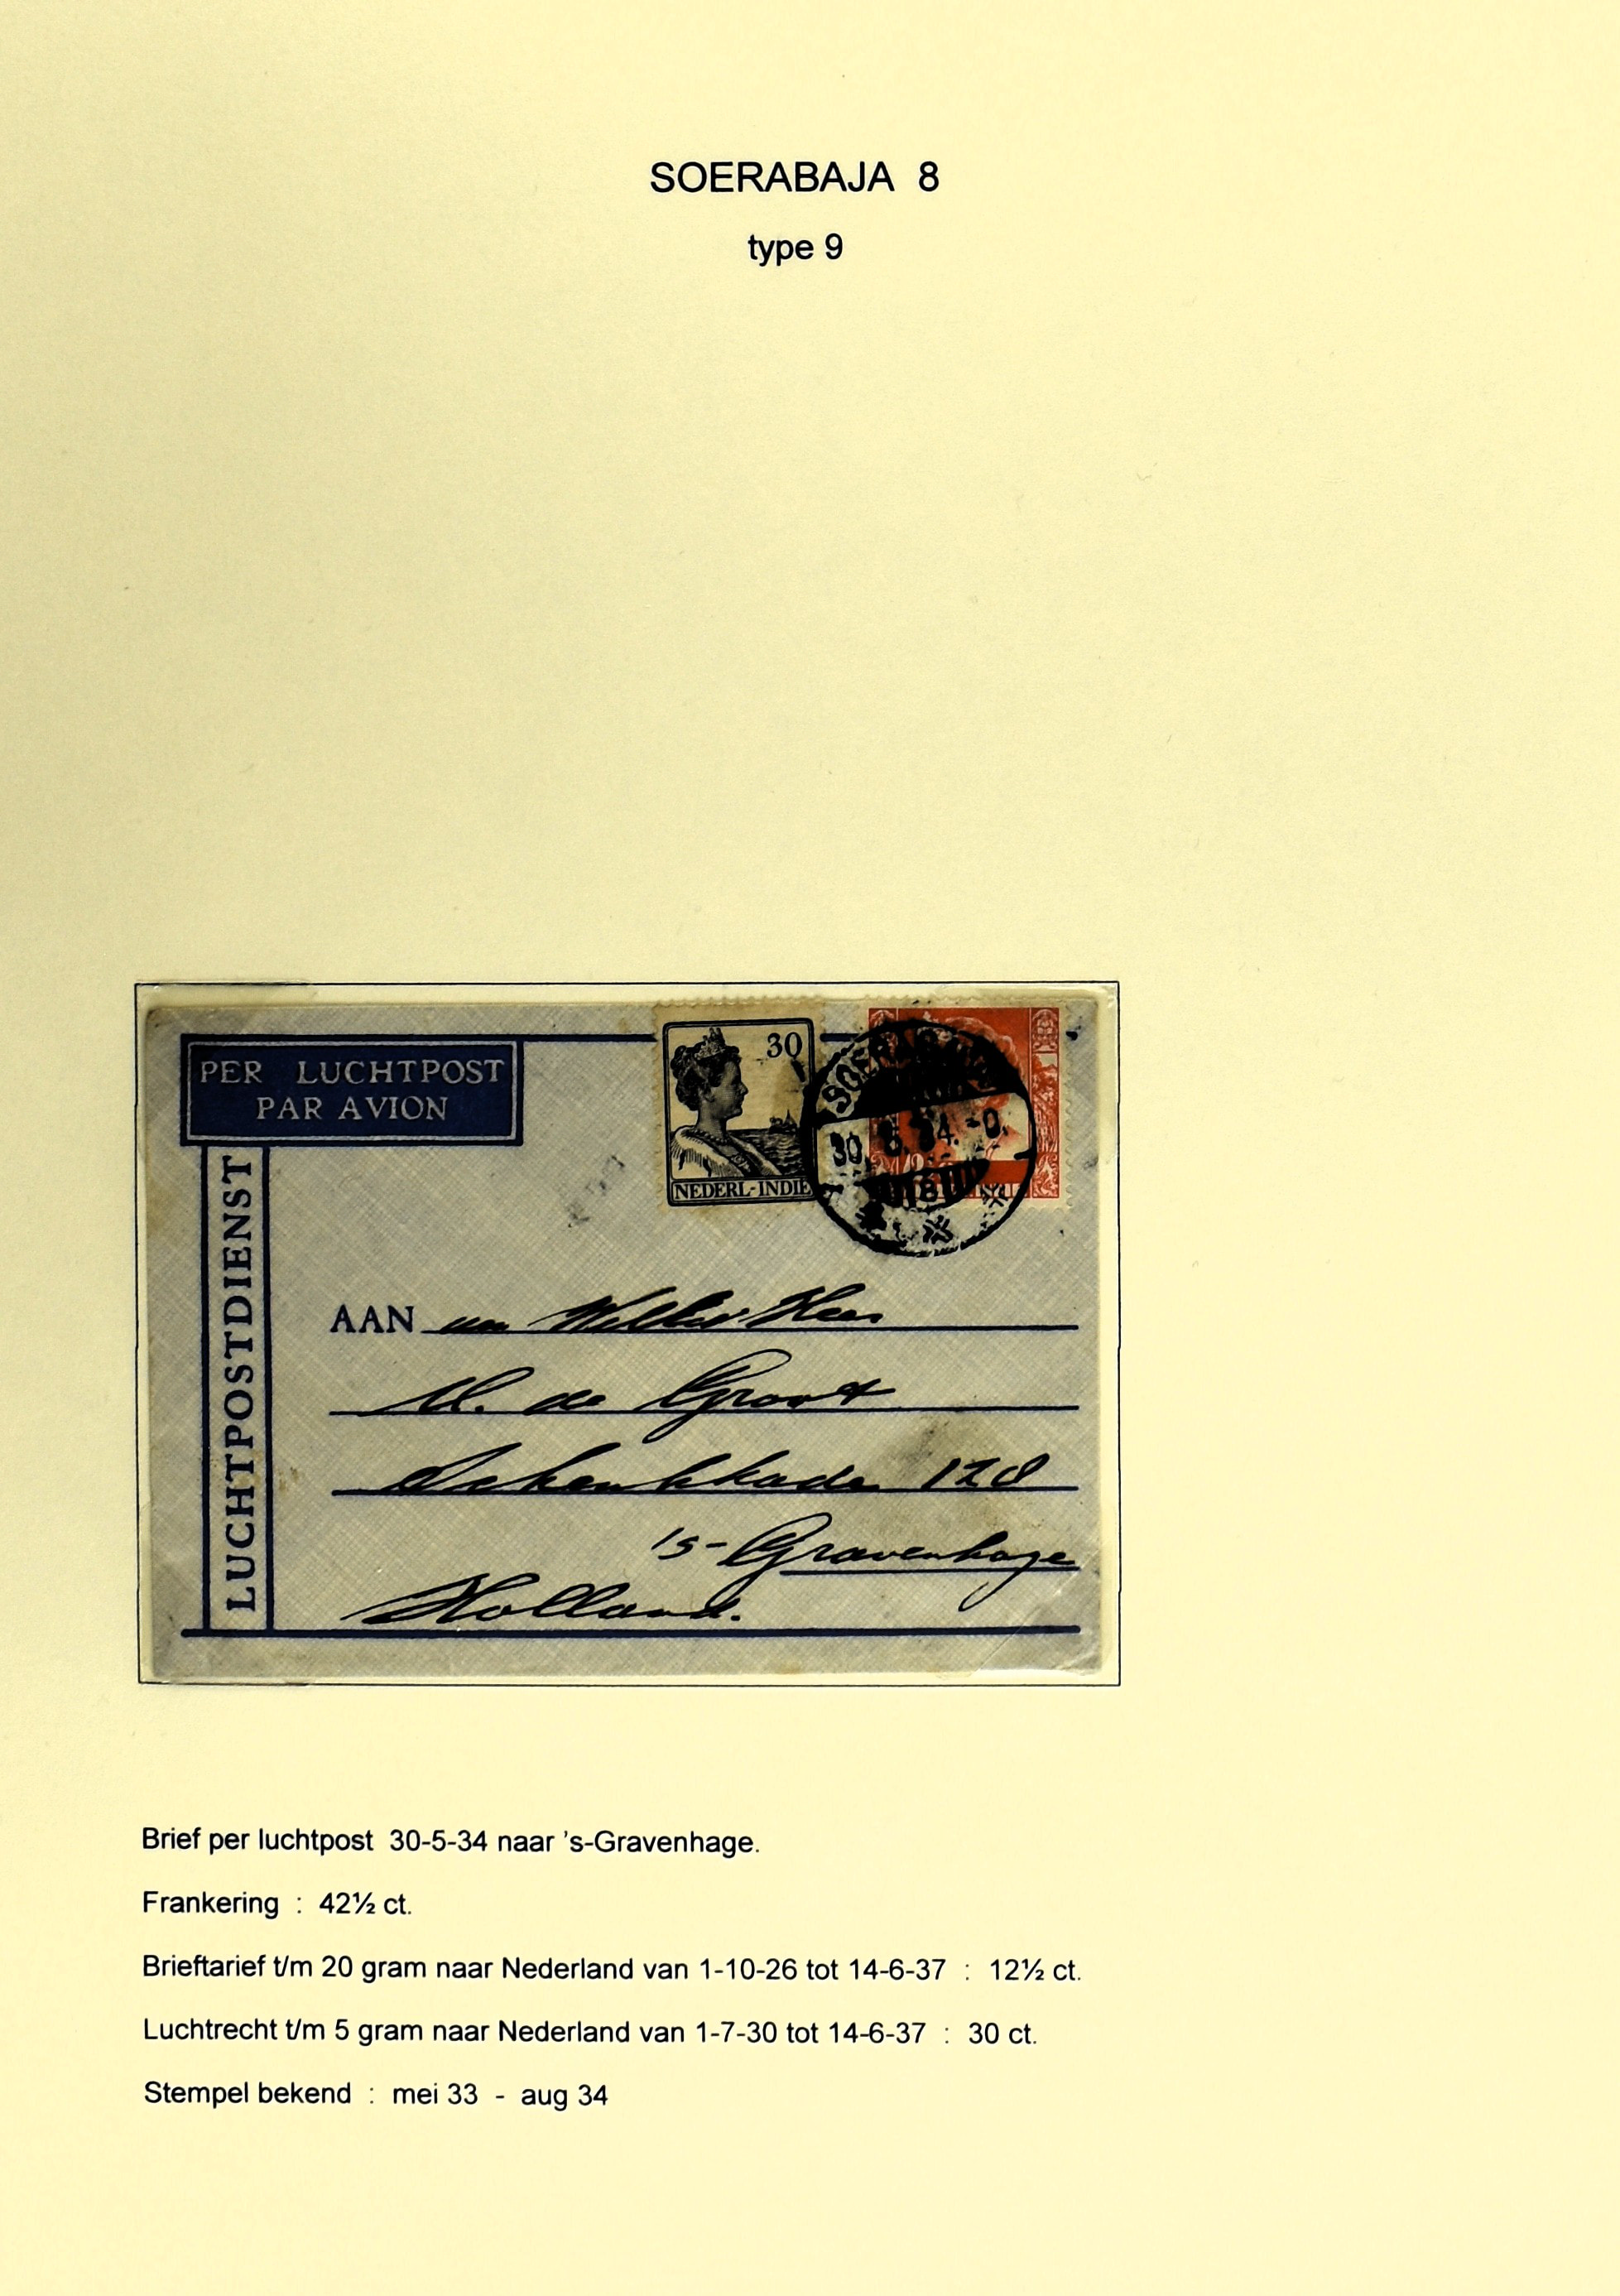 SOERABAJA 8
type 9
PER LUCHTPOST
PAR AVION
LUCHTPOSTDIENST
30
NEDERL-INDIE
30. 5. 34. -0.
8
AAN
M. de Groot
Schenkkade 128
's-Gravenhage
Holland.
Brief per luchtpost 30-5-34 naar 's-Gravenhage.
Frankering : 42½ ct.
Brieftarief t/m 20 gram naar Nederland van 1-10-26 tot 14-6-37 : 12½ ct.
Luchtrecht t/m 5 gram naar Nederland van 1-7-30 tot 14-6-37 : 30 ct.
Stempel bekend : mei 33 - aug 34